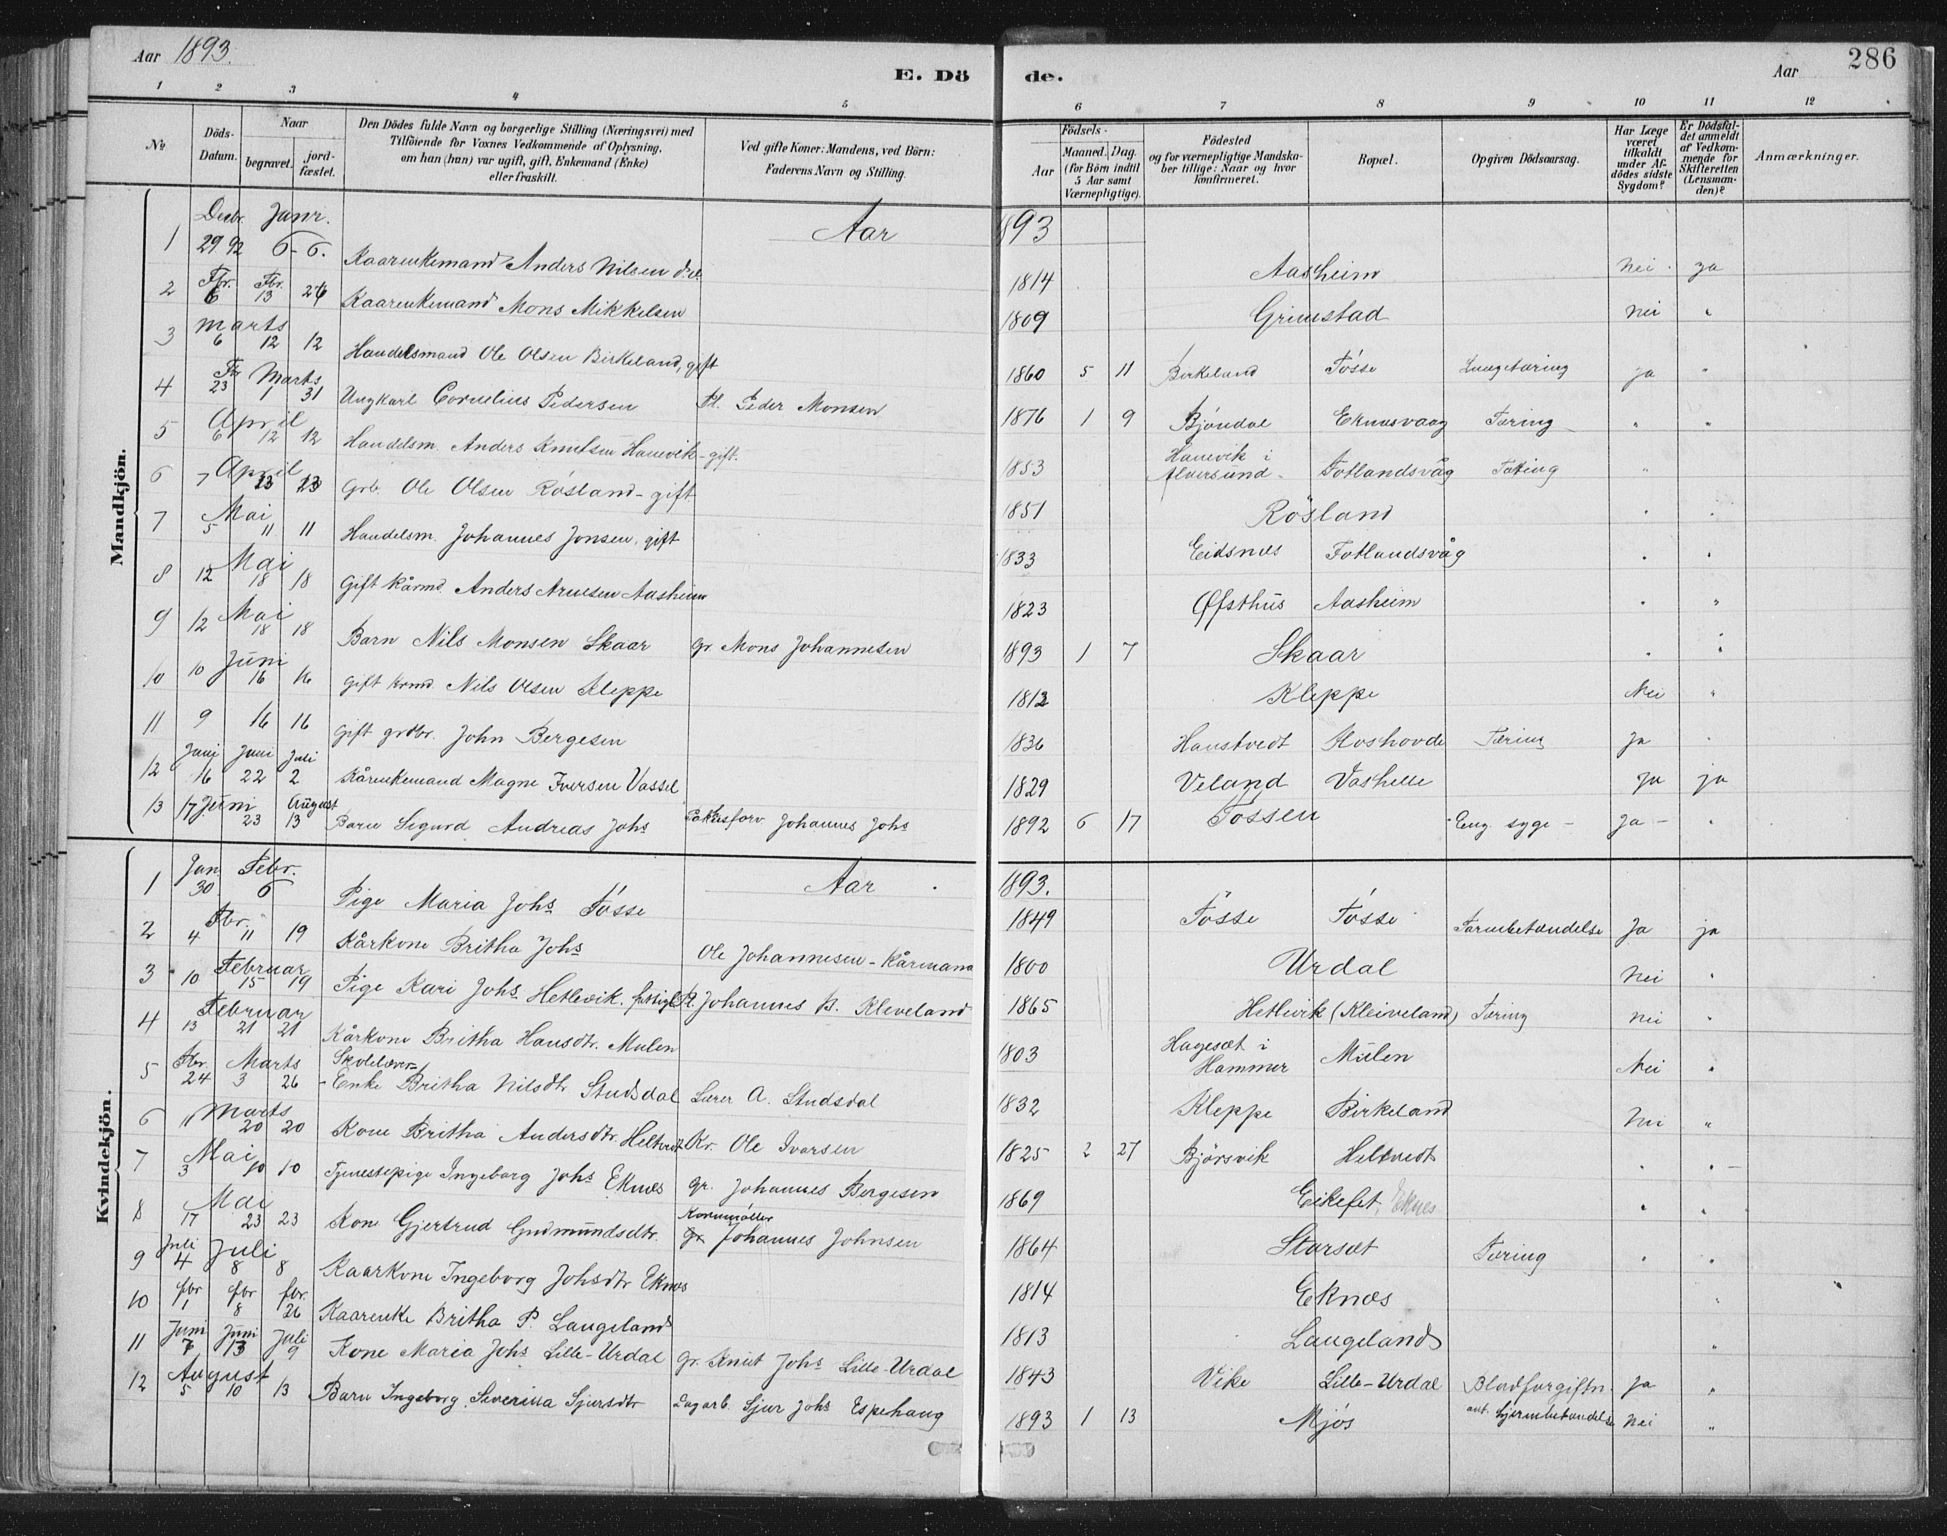 Aar 1893. E. Dö de. Aar 286
1 2 3 4 5 6 7 8 9 10 11 12
No
Döds-Datum.
Naar
begravet.
jord-fæstet.
Den Dödes fulde Navn og borgerlige Stilling (Næringsvei) med
Tilföiende for Voxnes Vedkommende af Oplysning,
om han (hun) var ugift, gift, Enkemand (Enke)
eller fraskilt.
Ved gifte Koner: Mandens, ved Börn:
Faderens Navn og Stilling.
Födsels-
Aar
Maaned. Dag.
(for Börn indtil
5 Aar samt
Værnepligtige).
Födested
og for værnepligtige Mandska-
ber tillige: Naar og hvor
konfirmeret.
Bopæl.
Opgiven Dödsaarsag.
Har Læge
været
tilkaldt
under Af-
dödes sidste
Sygdom?
Er Dödsfal-
det anmeldt
af Vedkom-
mende for
Skifteretten
(Lensman-
den)?
Anmærkninger.
Mandkjön.
Aar 1893
1 Decbr. 29 92 Janr. 6 - 6. Kaarenkemand Anders Nilsen 1814 Aasheim Nei ja
2 Fbr. 6 Fbr. 13 26 Kaarenkemand Mons Mikkelsen 1809 Grimstad Nei "
3 Marts 6 12 12 Handelsmand Ole Olsen Birkeland, gift 1860 5 11 Birkeland Tösse Lungetæring ja "
4 Fbr 23 Marts 1 31 Ungkarl Cornelius Pedersen Pl. Peder Monsen 1876 1 9 Bjöndal Eknesvaag Tæring " "
5 April 6 12 12 Handelsm. Anders Knutsen Hanevik - gift. 1853 Hanevik i Alversund - Fotlandsvåg Tæring "
6 7 April 13 23 Grb. Ole Olsen Rösland - gift 1851 Rösland " "
7 Mai 5 11 11 Handelsm. Johannes Jonsen, gift 1833 Eidsnes Fotlandsvåg " "
8 12 Mai 18 18 Gift kårmd. Anders Arnesen Aasheim 1823 Øfsthus Aasheim " "
9 12 Mai 18 18 Barn Nils Monsen Skaar gr. Mons Johannesen 1893 1 7 Skaar " "
10 10 Juni 16 16 Gift krmd Nils Olsen Kleppe 1812 Kleppe Nei "
11 9 16 16 Gift grdbr. John Bergesen 1836 Hanstvedt Roshovde Tæring Ja "
12 Juni 16 Juni 22 Juli 2 Kårenkemand Magne Iversen Vassel 1829 Veland Vashelle ja ja
13 17 Juni 23 August 13 Barn Sigurd Andreas Johs Pakhusforv Johannes Johs 1892 6 17 Tössen Eng. syge - Ja - "
Kvindekjön.
Aar 1893.
1 Jan 30 Febr. 6 Pige Maria Johs Tösse 1849 Tösse Tösse Tarmbetændelse Ja ja
2 Fbr. 4 11 19 Kårkone Britha Johs Ole Johannesen - Kårmand 1800 Urdal Nei "
3 10 Februar 15 19 Pige Kari Johs. Hetlevik. Pl. Johannes B. Kleveland 1865 Hetlevik (Kleiveland) Tæring Nei "
4 Februar 13 21 21 Kårkone Britha Hansdtr. Mulen 1803 Hagesæt i Hammer Mulen Nei "
5 Fbr. 24 Marts 3 26 Skolelærer- Enke Britha Nilsdtr Studsdal Lærer A. Studsdal 1832 Kleppe Birkeland Nei "
6 11 Marts 20 20 Kone Britha Andersdtr. Heltvedt Kr. Ole Iversen 1825 2 27 Björsvik Heltvedt " "
7 Mai 3 10 10 Tjenestepige Ingeborg Johs Eknes gr. Johannes Bergesen 1869 Eikefet, Eknes " "
8 Mai 17 23 23 Kone Gjertrud Gudmundsdtr. Kornmöller Gr Johannes Johnsen 1864 Storsæt Tæring " "
9 Juli 4 Juli 8 8 Kaarkone Ingeborg Johsdtr Eknes 1814 Eknæs "
10 fbr 1 fbr 8 fbr. 26 Kaarenke Britha P. Langeland 1813 Langeland "
11 Juni 7 Juni 13 Juli 9 Kone Maria Johs Lille-Urdal gr. Knut Johs Lille-Urdal 1843 Vike Lille-Urdal Blodforgiftn. ja "
12 August 5 10 13 Barn Ingeborg Severina Sjursdtr Dagarb. Sjur Johs Espehaug 1893 1 13 Mjös ant. hjernebetændelse Nei "